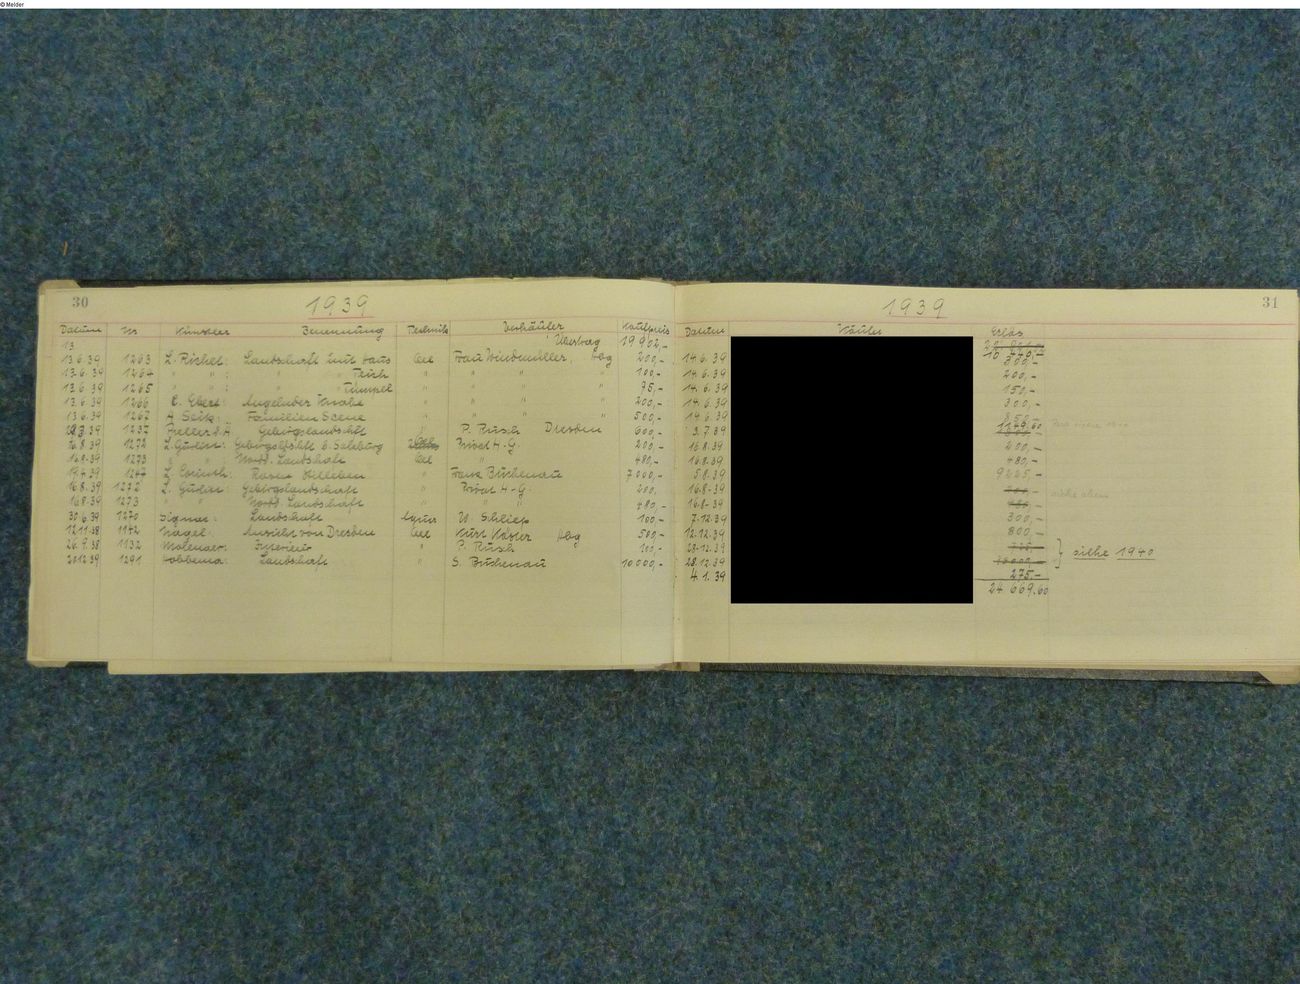 © Melder
30 1939
Datum Nr Künstler Benennung Technik Verkäufer Kaufpreis
Übertrag 19902,-
13
13.6.39 1263 L. Richet: Landschaft mit Haus Oel Frau Windmüller, Hbg 200,-
13.6.39 1264 " " : " Teich " " " " 100,-
13.6.39 1265 " " : " Tümpel " " " " 95,-
13.6.39 1266 C. Ebert: Angelnder Knabe " " " " 200,-
13.6.39 1267 A. Seitz: Familien Scene " " " " 500,-
1237 Gebirgslandschft " P. Rusch Dresden 600,-
16.8.39 1272 L. Gurlitt: b. Salzburg Privat H-G. 200,-
16.8.39 1273 " Nordd. Landschaft Oel " 480,-
19.4.39 1247 L. Corinth: Rosen Stilleben " Franz Buchenau 7000,-
16.8.39 1272 L. Gurlitt: Gebirgslandschaft " Privat H-G. 200,
16.8.39 1273 " " Nordd. Landschaft " " 480,-
30.6.39 1270 Signac: Landschaft Aquar W. Schliep 100,-
12.11.38 1142 Nagel: Ansicht von Dresden Oel Kurt Köster Hbg 500,-
26.9.38 1132 Molenaer: Interieur " P. Rusch 100,-
20.12.39 1291 Hobbema: Landschaft " S. Buchenau 10000,-
1939 31
Datum Käufer Erlös
14.6.39 300,-
14.6.39 200,-
14.6.39 150,-
14.6.39 300,-
14.6.39 850,-
3.7.39 1349.60
16.8.39 200,-
16.8.39 480,-
5.8.39 9225,-
16.8.39 siehe oben
16.8.39
7.12.39 300,-
12.12.39 800,-
28.12.39 siehe 1940
28.12.39
4.1.39 275,-
24 669.60